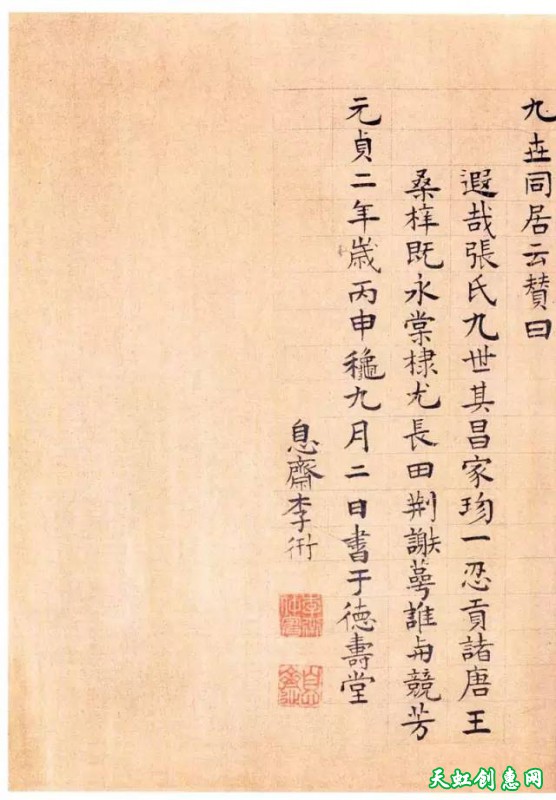 九世同居云贊曰
遐哉張氏九世其昌家珎一忍貢諸唐王
桑梓既永棠棣尤長田荆謝萼誰与競芳
元貞二年歲丙申龝九月二日書于德壽堂
息齋李衎
天虹创惠网